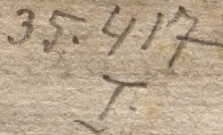 35.417
I.